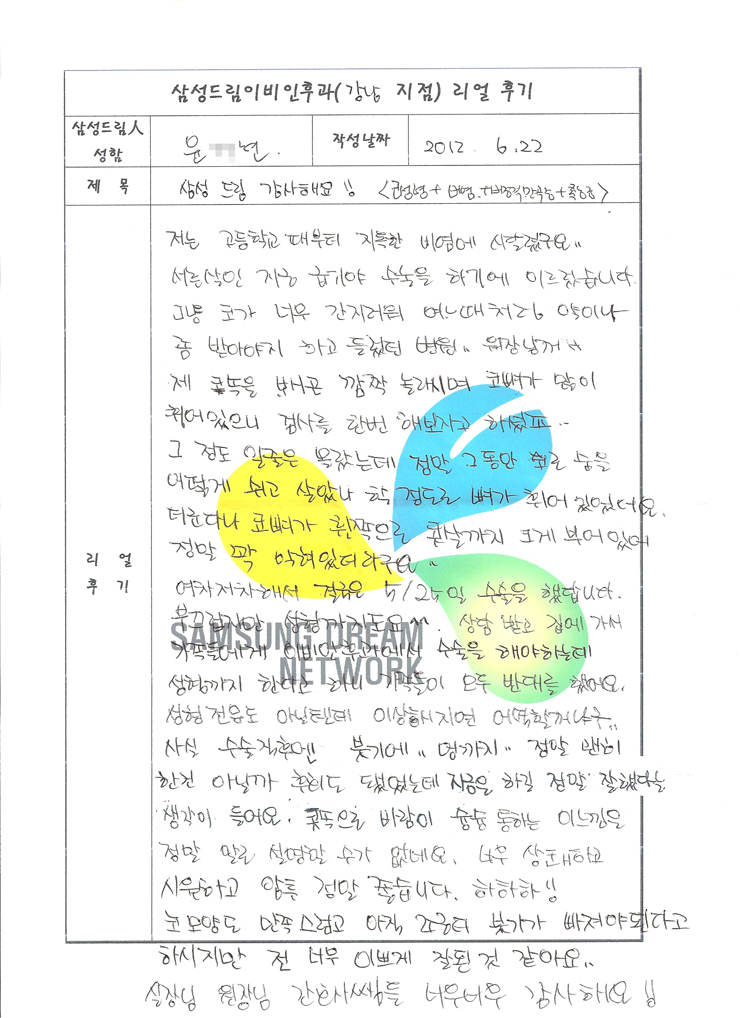 삼성드림이비인후과(강남 지점) 리얼 후기
삼성드림人 성함
윤 년.
작성날짜
2012. 6.22
제 목
삼성 드림 감사해요!! <코성형+비염+비중격만곡증+축농증>
리 얼
후 기
저는 고등학교 때부터 지독한 비염에 시달렸구요..
서른살인 지금 급기야 수술을 하기에 이르렀습니다.
그냥 코가 너무 간지러워 여느때처럼 약이나
좀 받아야지 하고 들렀던 병원.. 원장님께서
제 콧뚝을 보시곤 깜짝 놀라시며 코뼈가 많이
휘어있으니 검사를 한번 해보자고 하셨죠..
그 정도 일줄은 몰랐는데 정말 그동안 코로 숨을
어떻게 쉬고 살았나 할 정도로 뼈가 휘어 있었어요.
더군다나 코뼈가 휜쪽으로 콧살까지 크게 부어있어
정말 꽉 막혀있더라구요..
여차저차해서 결국은 5/25일 수술을 했답니다.
부끄럽지만 성형까지도요^^. 상담 받고 집에 가서
가족들에게 이비인후과에서 수술을 해야하는데
성형까지 한다고 하니 가족들이 모두 반대를 했어요.
성형전문도 아닐텐데 이상해지면 어떡할꺼냐구..
사실 수술직후엔 붓기에.. 멍까지.. 정말 괜히
한건 아닐까 후회도 됐었는데 지금은 하길 정말 잘했다는
생각이 들어요. 콧뚝으로 바람이 슝슝 통하는 이느낌은
정말 말로 설명할 수가 없네요. 너무 상쾌하고
시원하고 암튼 정말 좋습니다. 하하하!!
코모양도 만족스럽고 아직 조금더 붓기가 빠져야된다고
하시지만 전 너무 이쁘게 잘된것 같아요..
실장님 원장님 간호사쌤들 너무너무 감사해요!!
SAMSUNG DREAM
NETWORK